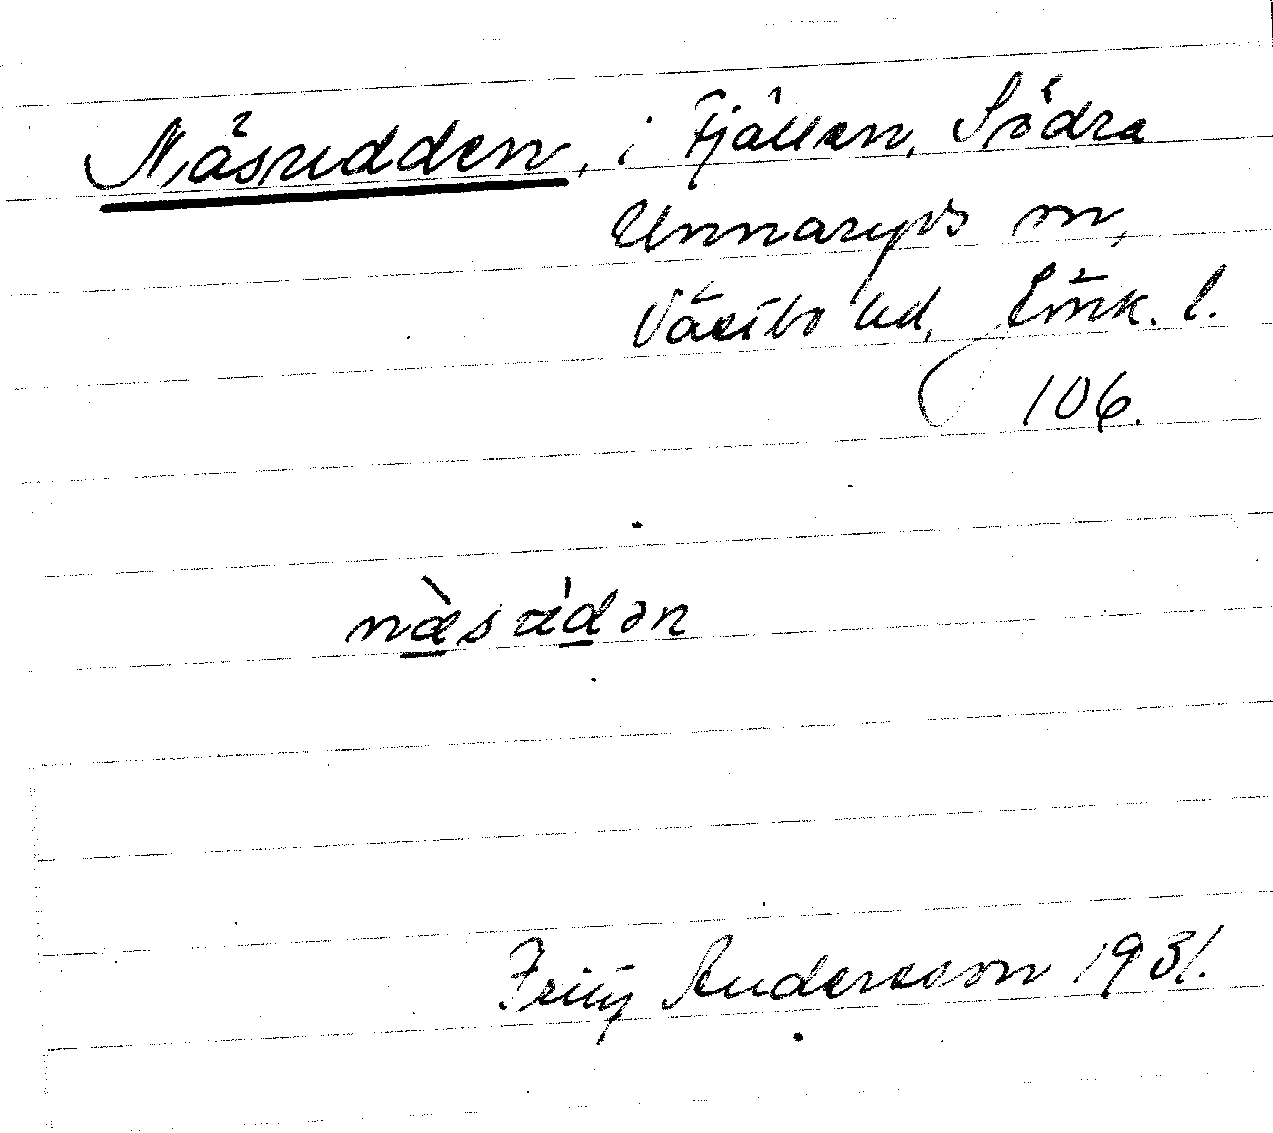 Näsrudden, i Fjällen, Södra
Unnaryds sn,
Västbo hd, Jönk. l.
106.
næsrudən
Fritz Andersson 1931.